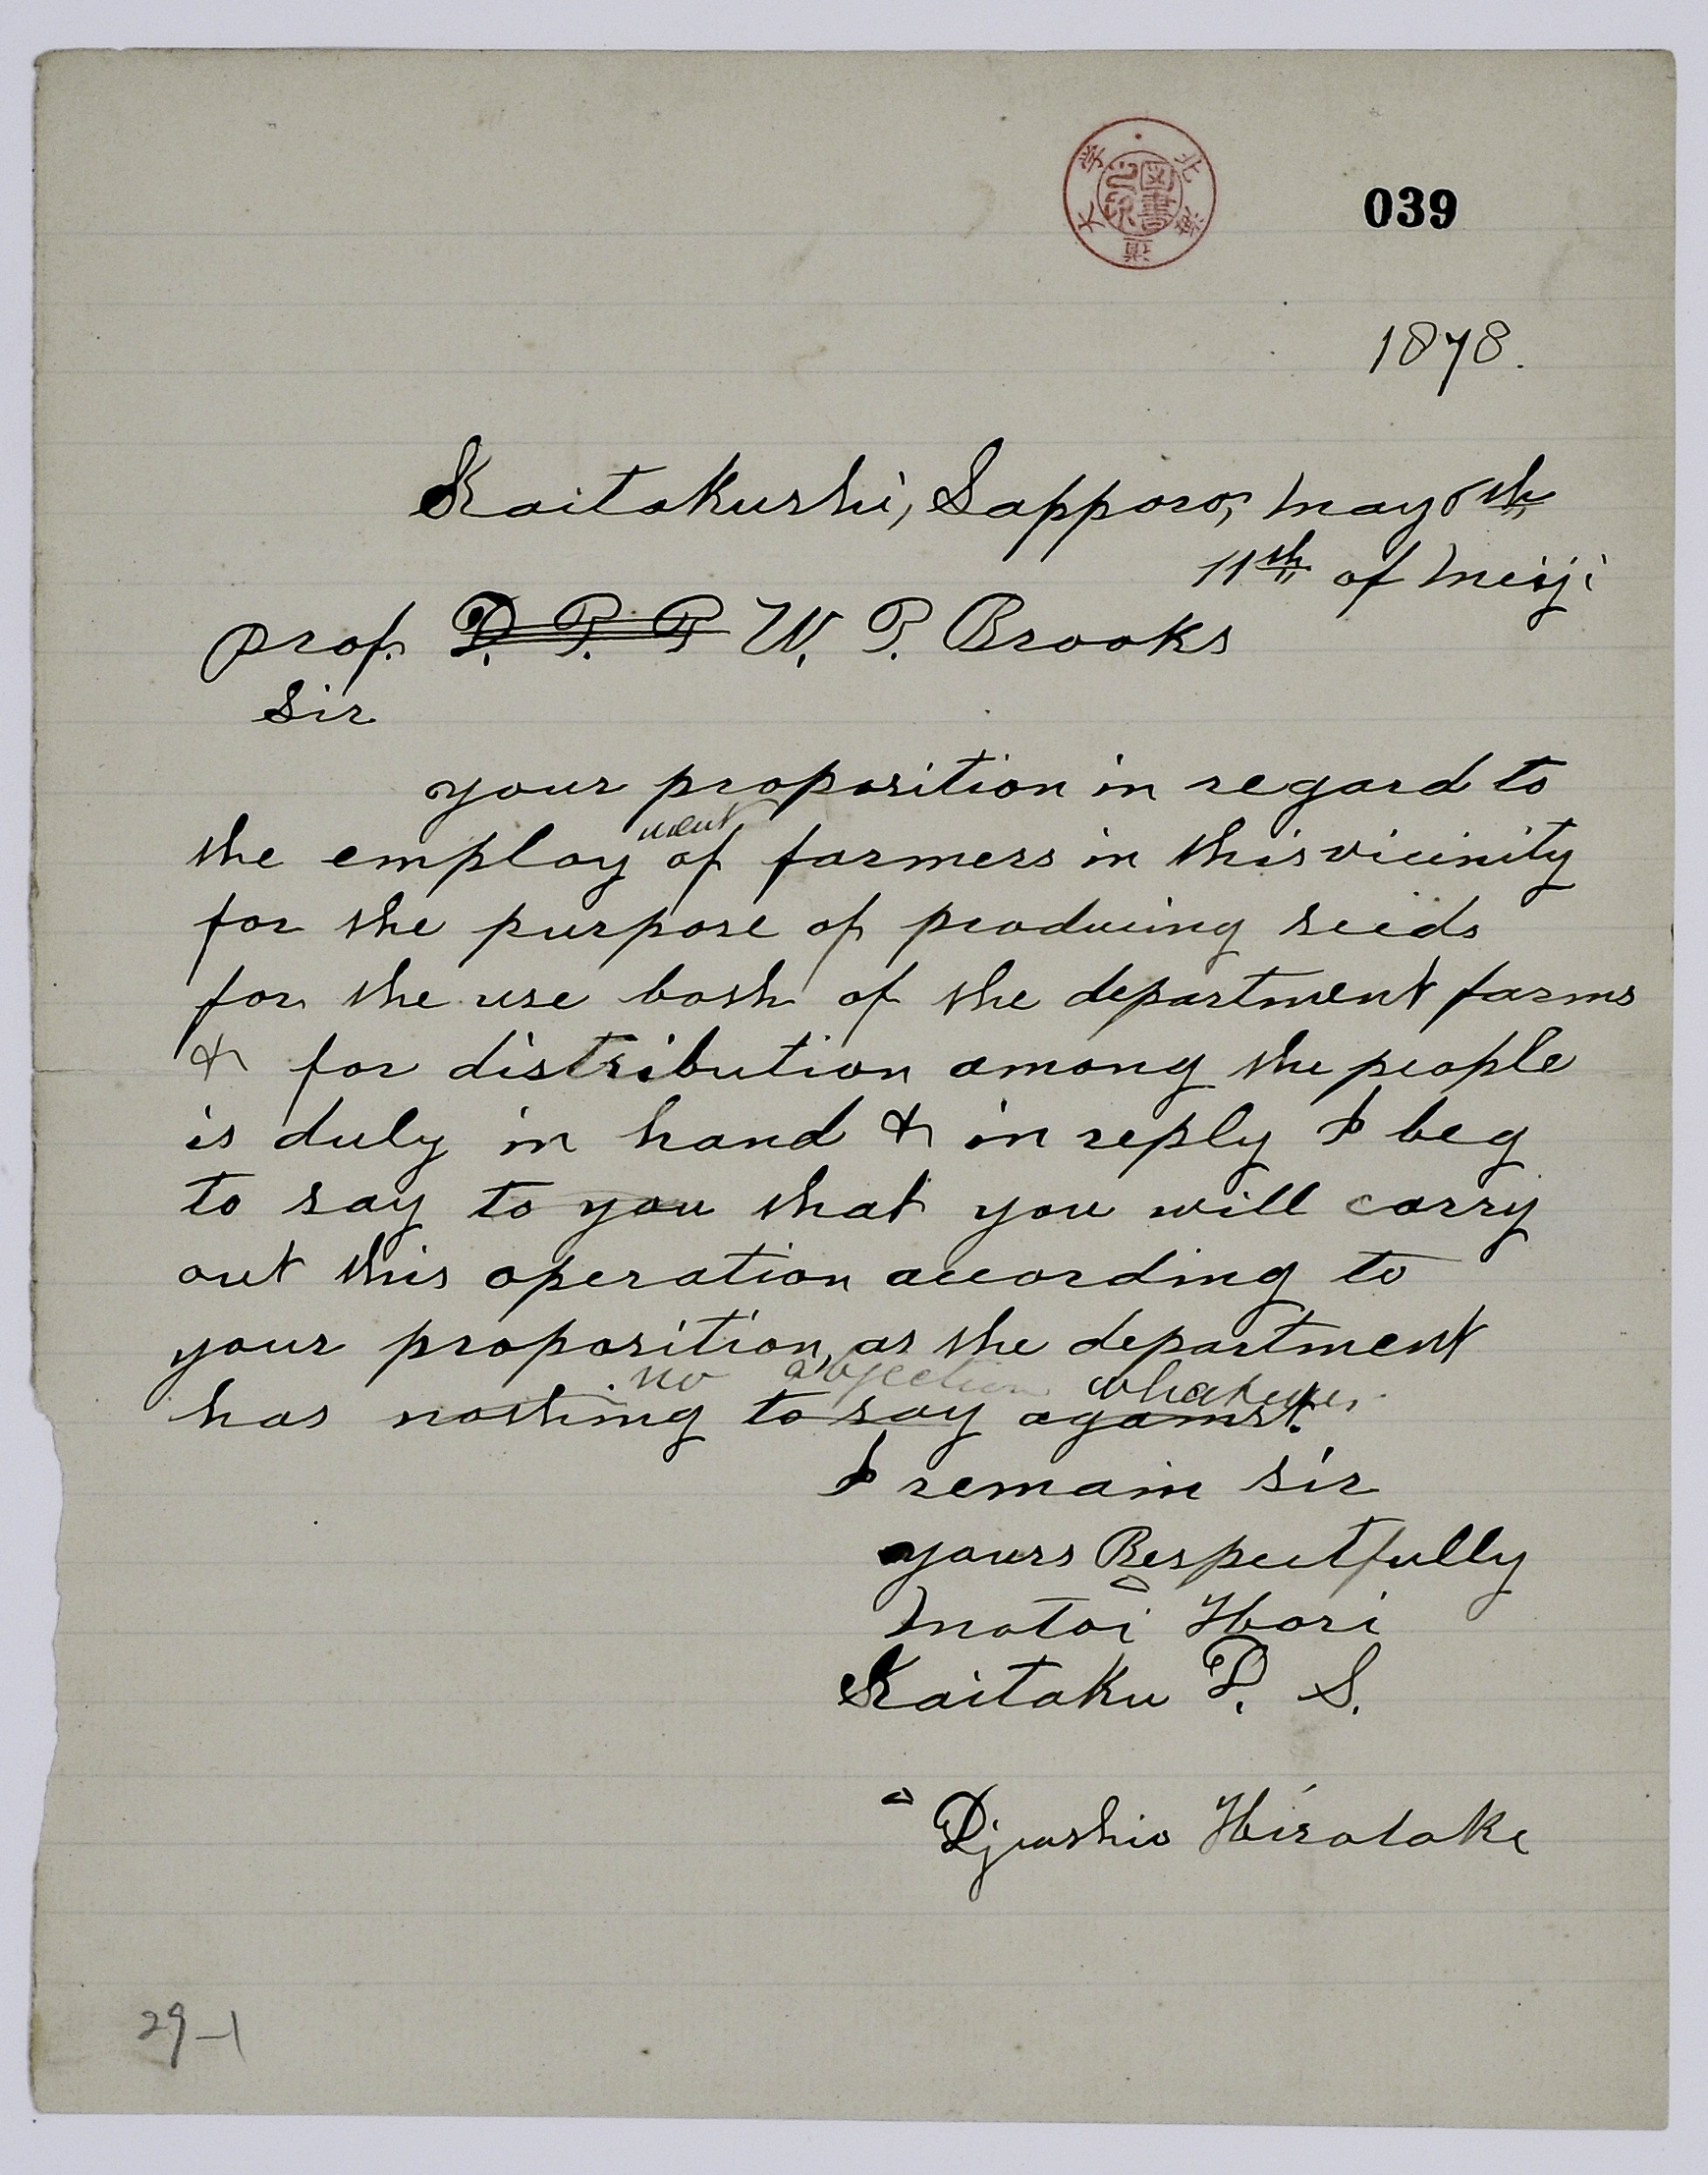 北海道大学
図書之印
039
1878.
Kaitakushi, Sapporo, may 6th
11th of meiji
Prof. D. P. P W. P. Brooks
Sir
your proposition in regard to
the employment of farmers in this vicinity
for the purpose of producing seeds
for the use both of the department farms
& for distribution among the people
is duly in hand & in reply I beg
to say to you that you will carry
out this operation according to
your proposition, as the department
no objection whatever.
has nothing to say against.
I remain sir
yours Respectfully
Motoi Hori
Kaitaku P. S.
Djushio Hirotake
29-1